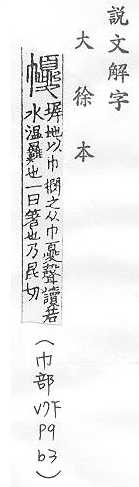 説文解字
大徐本
墀地以巾撋之从巾夒聲讀若
水温㬮也一曰箸也乃昆切
（巾部 V7下 P9 b3）